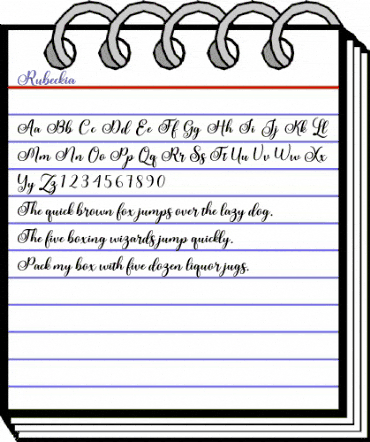 Rubeckia
Aa Bb Cc Dd Ee Ff Gg Hh Ii Jj Kk Ll
Mm Nn Oo Pp Qq Rr Ss Tt Uu Vv Ww Xx
Yy Zz 1 2 3 4 5 6 7 8 9 0
The quick brown fox jumps over the lazy dog.
The five boxing wizards jump quickly.
Pack my box with five dozen liquor jugs.